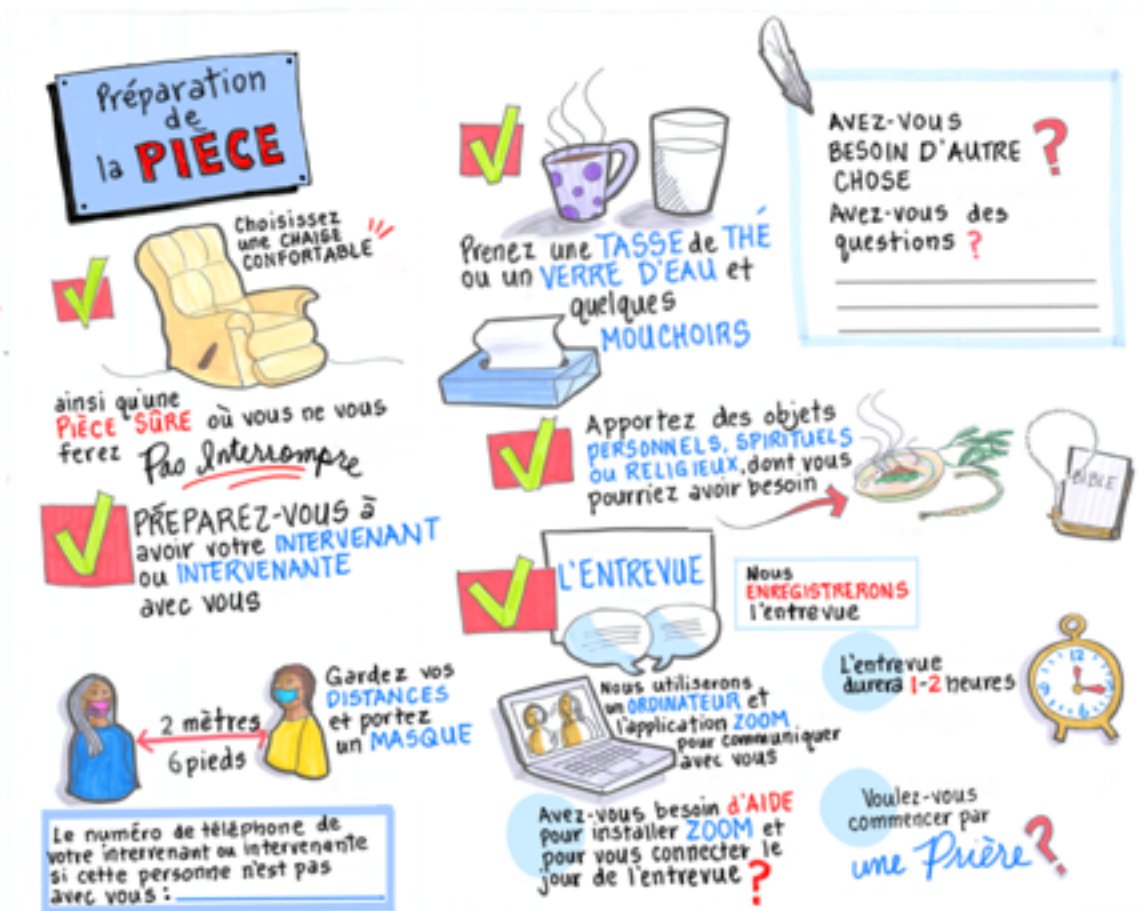 Préparation
de
la PIÈCE
Choisissez
une CHAISE
CONFORTABLE
ainsi qu'une
PIÈCE SÛRE où vous ne vous
ferez Pas Interrompre
PRÉPAREZ-VOUS à
avoir votre INTERVENANT
ou INTERVENANTE
avec vous
Gardez vos
DISTANCES
et portez
un MASQUE
2 mètres
6 pieds
Le numéro de téléphone de
votre intervenant ou intervenante
si cette personne n'est pas
avec vous :
Prenez une TASSE de THÉ
ou un VERRE D'EAU et
quelques
MOUCHOIRS
Apportez des objets
PERSONNELS, SPIRITUELS
ou RELIGIEUX, dont vous
pourriez avoir besoin
BIBLE
L'ENTREVUE
Nous
ENREGISTRERONS
l'entrevue
Nous utiliserons
un ORDINATEUR et
l'application ZOOM
pour communiquer
avec vous
L'entrevue
durera 1-2 heures
12
3
6
9
Avez-vous besoin d'AIDE
pour installer ZOOM et
pour vous connecter le
jour de l'entrevue ?
Voulez-vous
commencer par
une Prière ?
AVEZ-VOUS
BESOIN D'AUTRE
CHOSE ?
Avez-vous des
questions ?